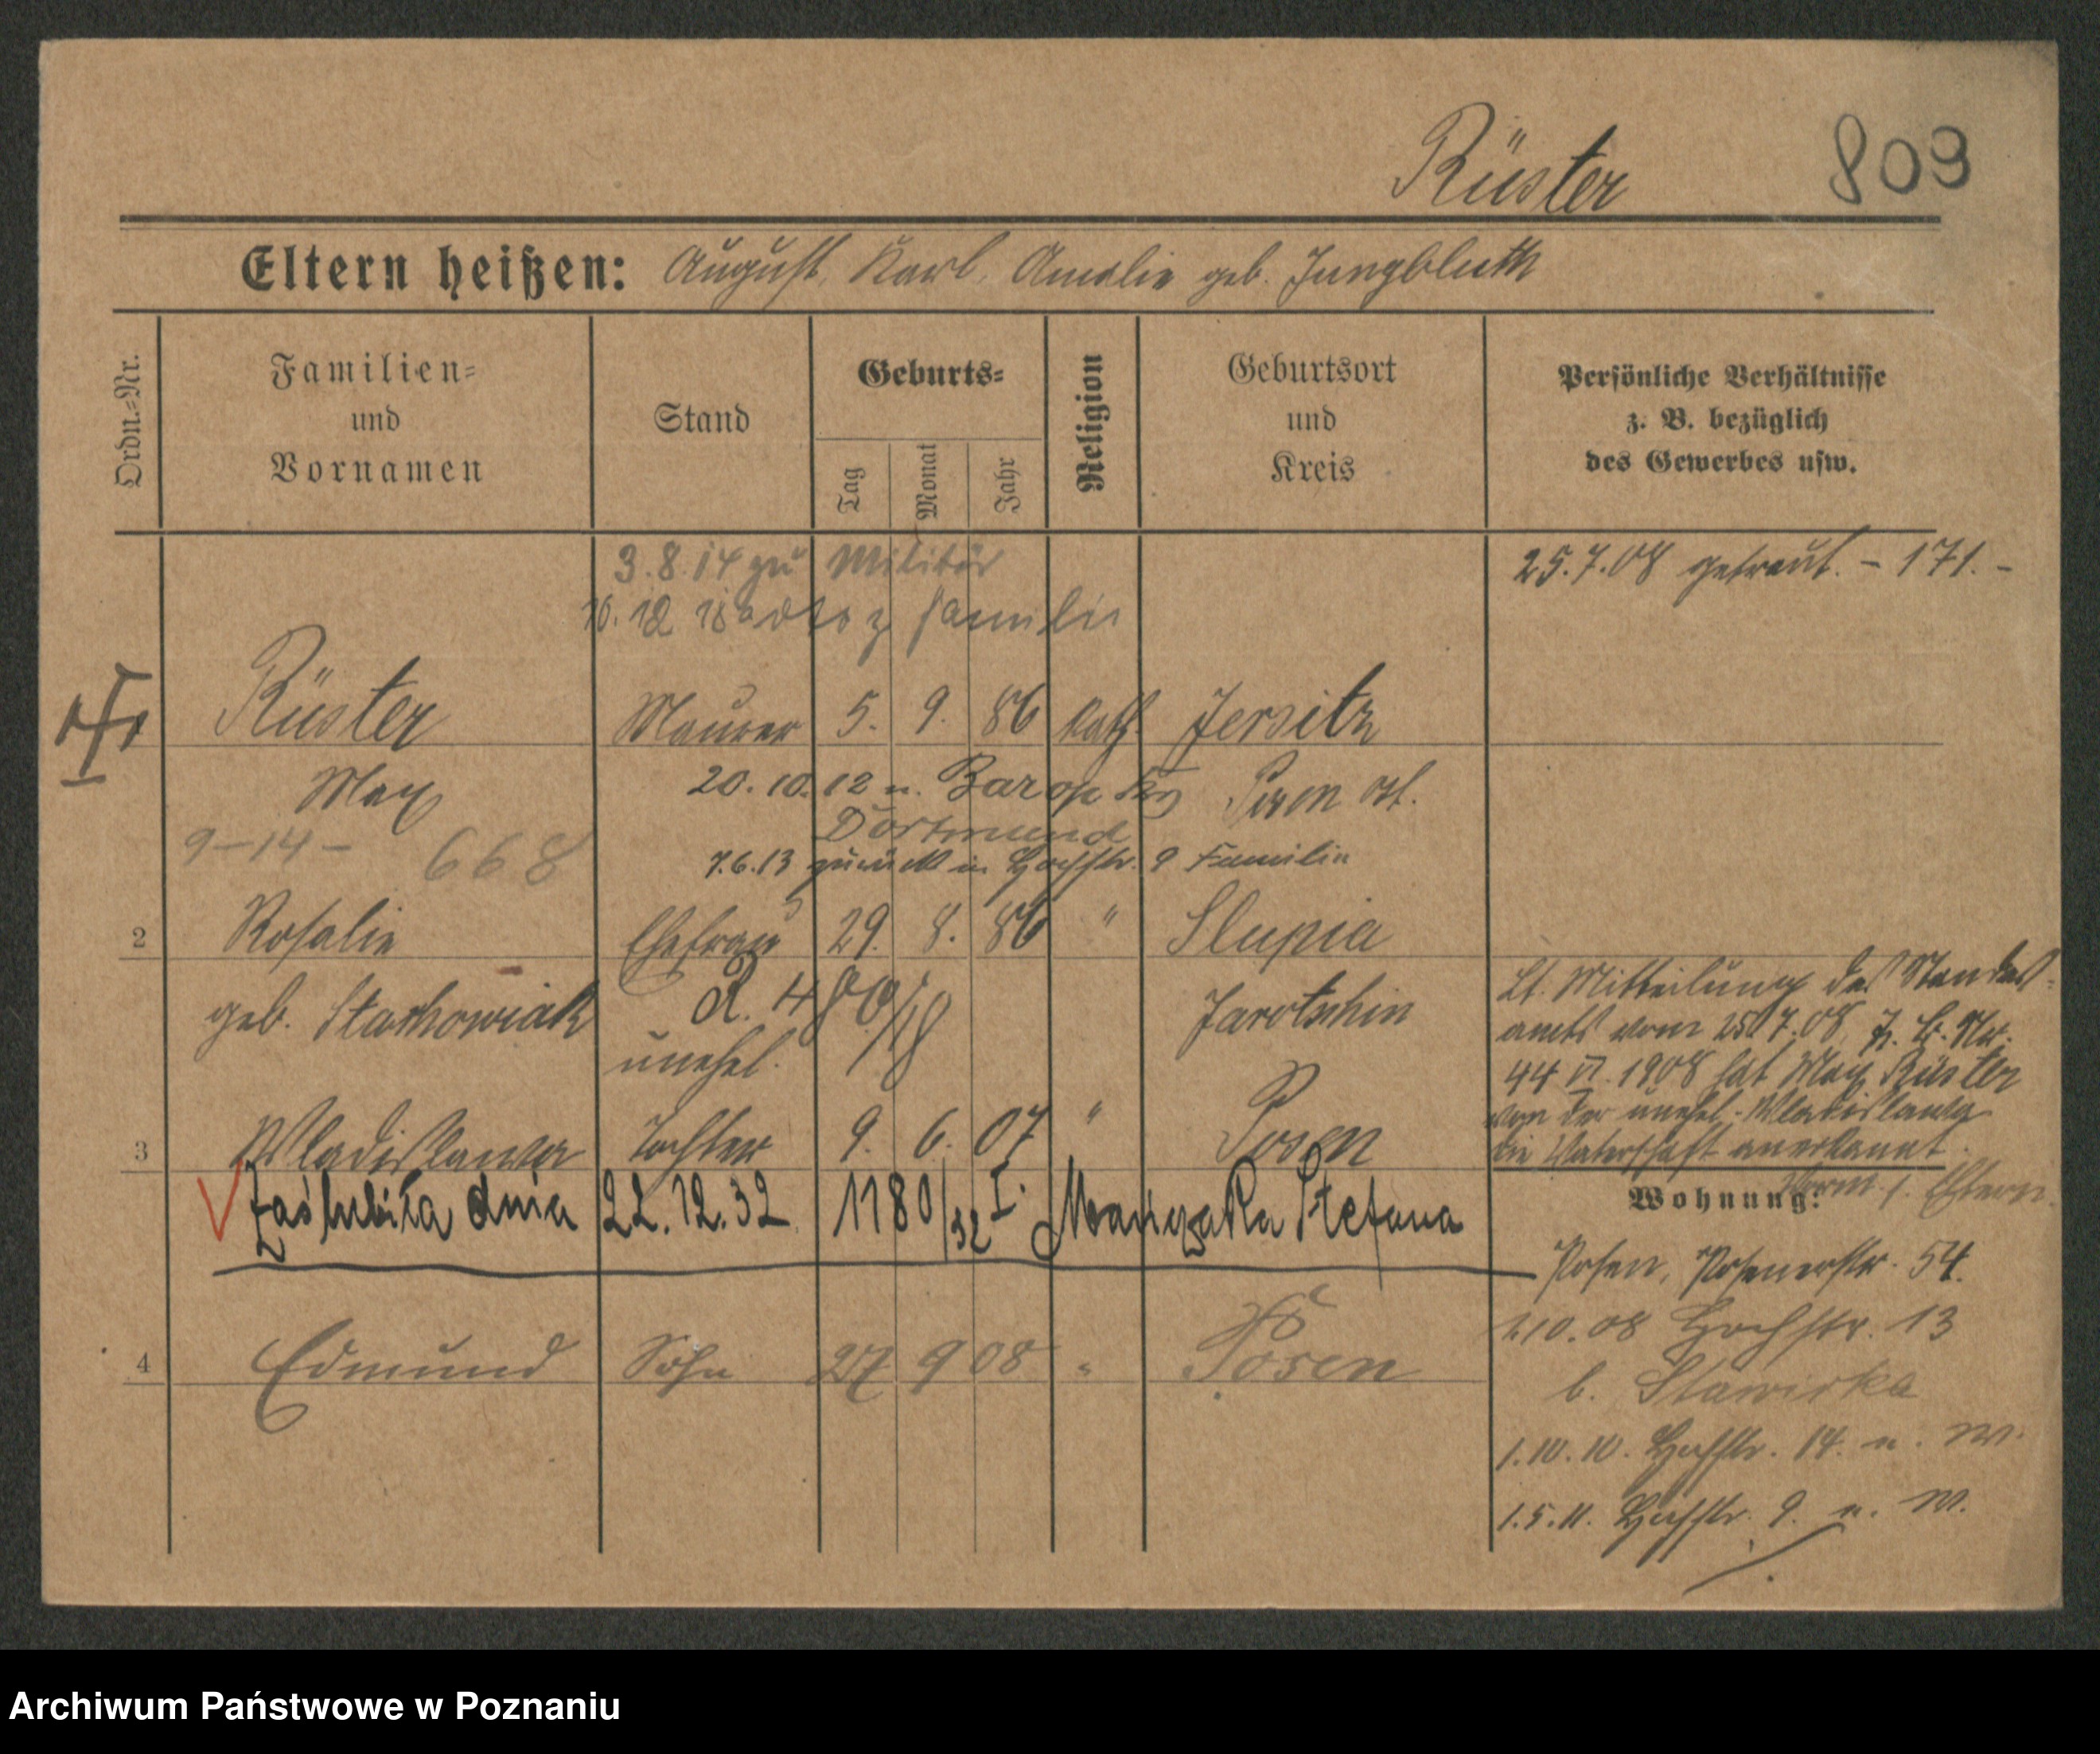 Rüster 809
Eltern heißen: August, Karl, Amalie geb. Jungbluth
Ordn.-Nr.
Familien-
und
Vornamen
Stand
Geburts-
Tag
Monat
Jahr
Religion
Geburtsort
und
Kreis
Persönliche Verhältnisse
z. B. bezüglich
des Gewerbes usw.
3.8.14 zu Militär
25.7.08 getraut. - 171. -
z Familie
Rüster Maurer 5. 9. 86 kath. Jersitz
Max 20.10.12 n. Barop Krs Posen
Dortmund
9-14- 668
7.6.13 zurück in Hochstr. 9 Familie
2 Rosalie Ehefrau 29. 8. 86 " Slupia
geb. Stachowiak R. 480/18 Jarotschin
unehel.
Lt. Mitteilung des Standes-
amts vom 25.7.08
44 VI. 1908 hat Max Rüster
von der unehel. Wladislawa
die Vaterschaft anerkannt.
3 Wladislawa Tochter 9. 6. 07 " Posen
zaślubiła dnia 22.12.32 1180/32 I. Stefana
Wohnung:
Eltern
Posen, Posenerstr. 54.
1.10.08 Hochstr. 13
b. Slawirska
4 Edmund Sohn 27 9 08 " Posen
1.10.10. Hochstr. 14. n. W.
1.5.11. Hochstr. 9. n. W.
Archiwum Państwowe w Poznaniu